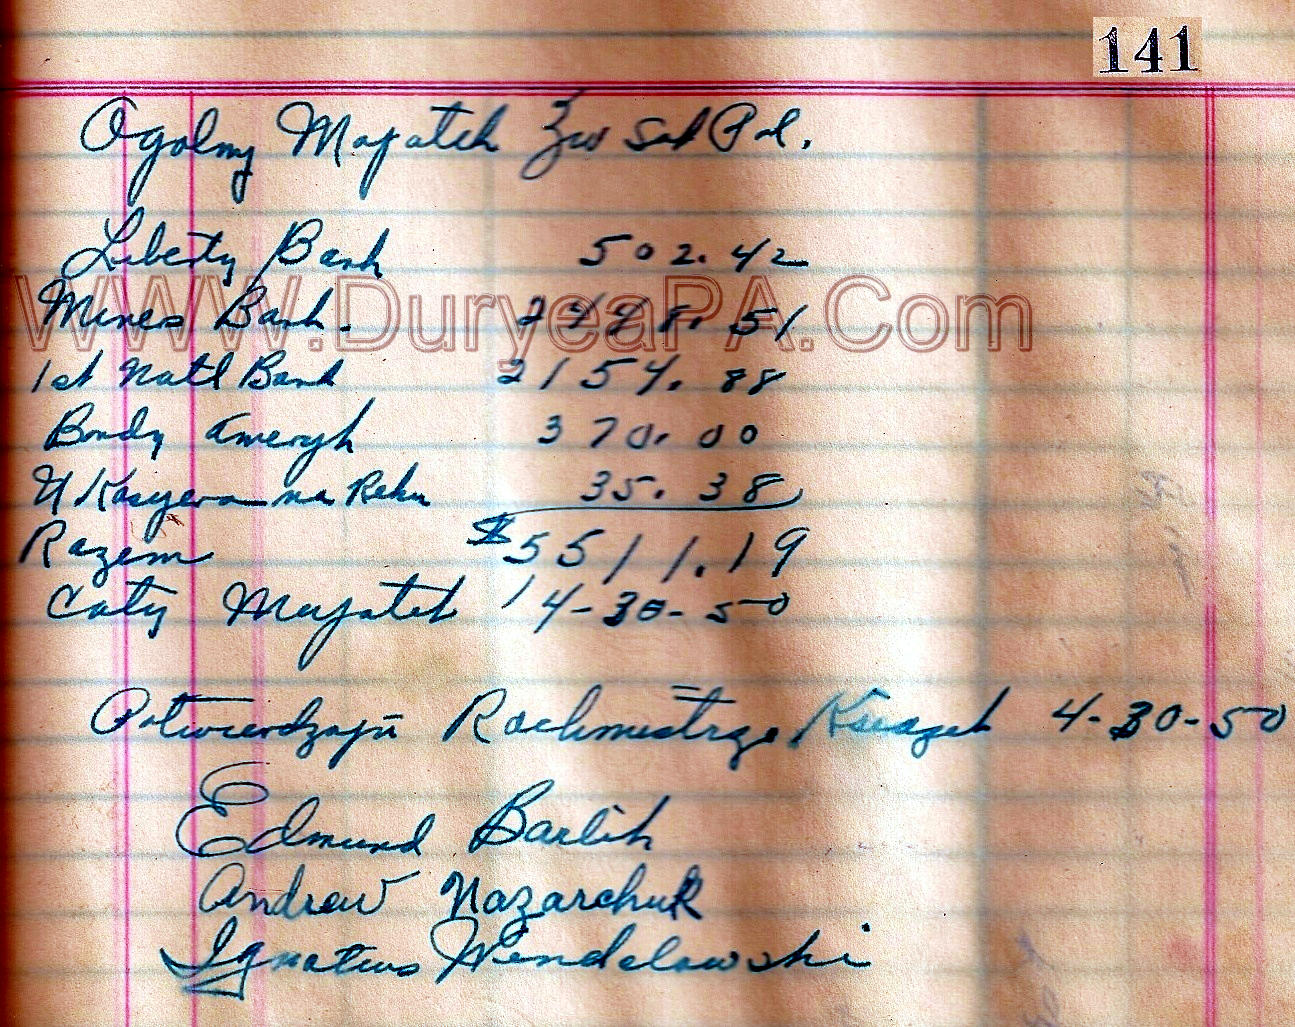 141
Ogolny Majatek Zw Sod Pol.
Liberty Bank 502.42
WWW.DuryeaPA.Com
Mines Bank. 2448.51
1st Natl Bank 2154.88
Bondy Ameryk 370.00
U Kasyera na Reku 35.38
Razem $5511.19
Caty Majatek 4-30-50
Potwierdzaja Rachmistrze Ksiazek 4-30-50
Edmund Barlik
Andrew Nazarchuk
Ignatius Wendolowski